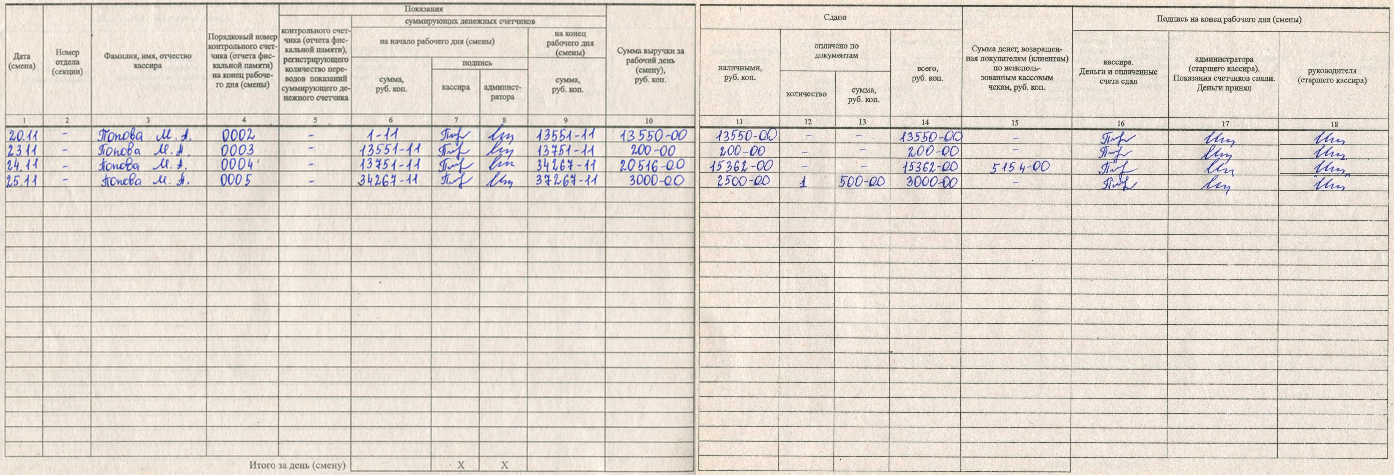 Показания
контрольного счет-
чика (отчета фис-
кальной памяти),
регистрирующего
количество пере-
водов показаний
суммирующего де-
нежного счетчика
суммирующих денежных счетчиков
на начало рабочего дня (смены)
на конец
рабочего дня
(смены)
Дата
(смена)
Номер
отдела
(секции)
Фамилия, имя, отчество
кассира
Порядковый номер
контрольного счет-
чика (отчета фис-
кальной памяти)
на конец рабоче-
го дня (смены)
сумма,
руб. коп.
подпись
кассира
админист-
ратора
сумма,
руб. коп.
Сумма выручки за
рабочий день
(смену),
руб. коп.
Сдано
наличными,
руб. коп.
оплачено по
документам
количество
сумма,
руб. коп.
всего,
руб. коп.
Сумма денег, возвращен-
ная покупателям (клиентам)
по неисполь-
зованным кассовым
чекам, руб. коп.
Подпись на конец рабочего дня (смены)
кассира.
Деньги и оплаченные
счета сдал
администратора
(старшего кассира).
Показания счетчиков снял.
Деньги принял
руководителя
(старшего кассира)
1 2 3 4 5 6 7 8 9 10 11 12 13 14 15 16 17 18
20.11 - Попова М. А. 0002 - 1-11 13551-11 13550-00 13550-00 - - 13550-00 -
23.11 - Попова М. А. 0003 - 13551-11 13751-11 200-00 200-00 - - 200-00 -
24.11 - Попова М. А. 0004 - 13751-11 34267-11 20516-00 15362-00 - - 15362-00 5154-00
25.11 - Попова М. А. 0005 - 34267-11 37267-11 3000-00 2500-00 1 500-00 3000-00 -
Итого за день (смену) X X